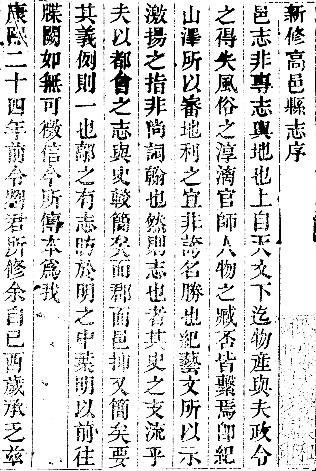 新修高邑縣志序
邑志非專志輿地也上自天文下迄物產與夫政令
之得失風俗之淳漓官師人物之臧否皆繫焉卽紀
山澤所以審地利之宜非誇名勝也紀藝文所以示
激揚之指非尚詞翰也然則志也者其史之支流乎
夫以都會之志與史較簡矣而郡而邑抑又簡矣要
其義例則一也鄗之有志昉於明之中葉明以前往
牒闕如無可徵信今所傳本爲我
康熙二十四年前令劉君所修余自己酉歲承乏茲